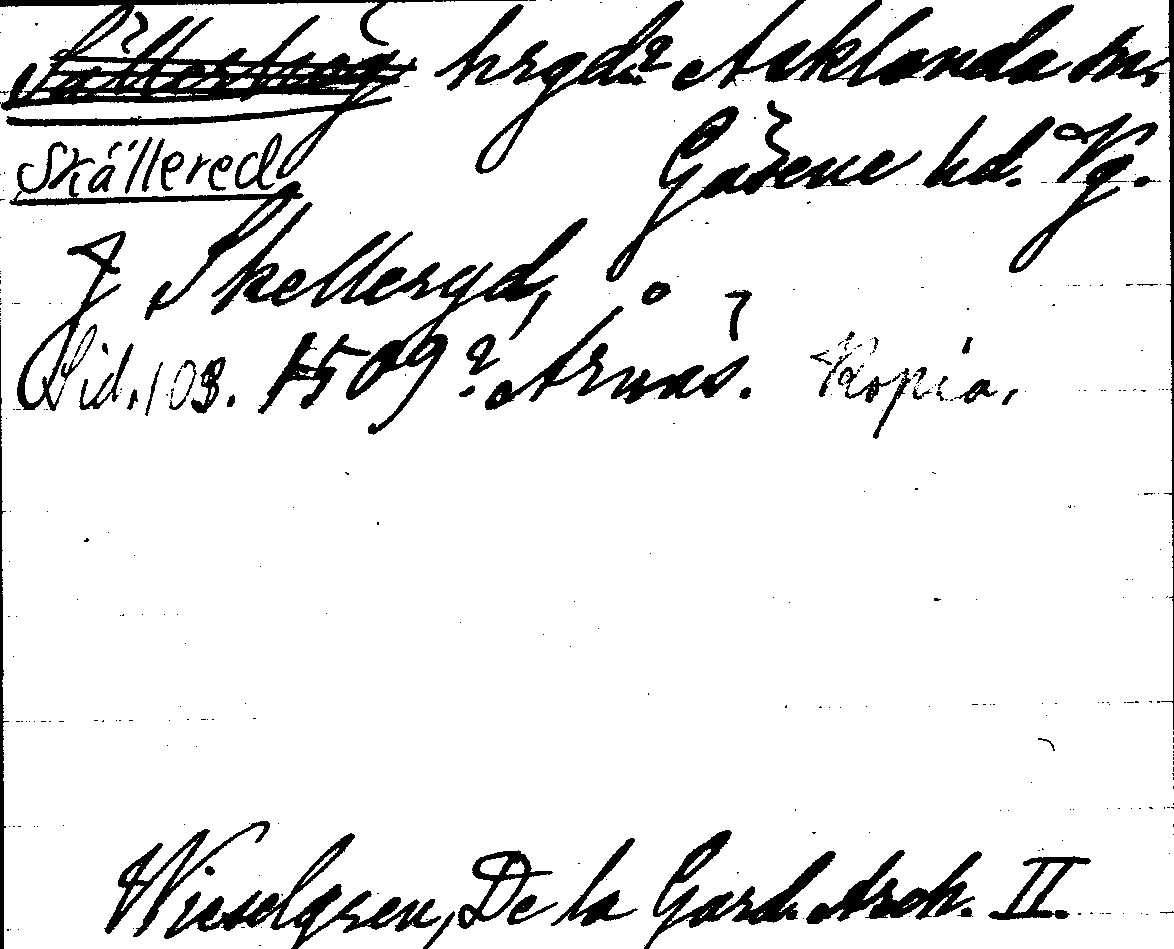 hrgd? Asklanda sn,
Skällered Gäsene hd. Vg.
J Skellergd,
Sid. 103. 1509? Årnäs. Kopia.
Wieselgren, De la Gard. Arch. II.